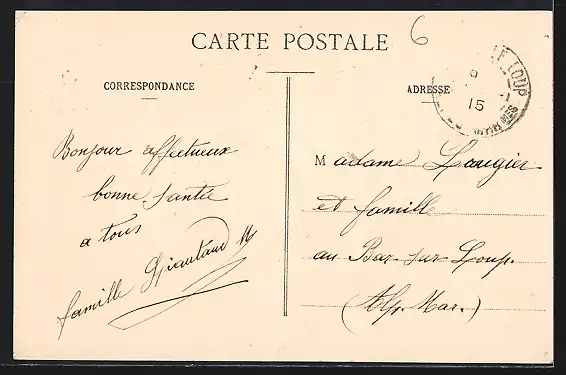 CARTE POSTALE
6
CORRESPONDANCE
ADRESSE
LE LOUP
9
15
Bonjour affectueux
bonne santée
a tous
famille
Madame Laugier
et famille
au Bar-sur-Loup
(Alp. Mar.)